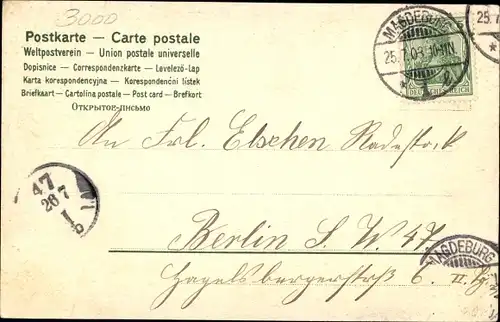 3000
Postkarte — Carte postale
Weltpostverein — Union postale universelle
Dopisnice — Correspondenzkarte — Levelező-Lap
Karta korespondencyjna — Korespondenční lístek
Briefkaart — Cartolina postale — Post card — Brefkort
Открытое-письмо
MAGDEBURG
25.7.03. 10-11N
* 1
DEUTSCHES REICH
25.7
An Frl. Elschen Radestock
47
26 7
Berlin S. W. 47.
MAGDEBURG
Hagelsbergerstrß 6. II.